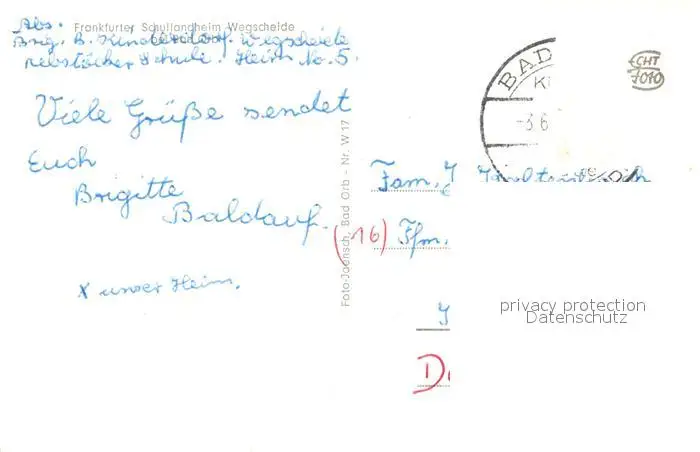 Abs. Frankfurter Schullandheim Wegscheide
Brig. B. Kinderdorf. Wegscheide
Heim No. 5.
Viele Grüße sendet
Euch
Brigitte
Baldauf.
x unser Heim.
Foto-Jaensch, Bad Orb - Nr. W 17
BAD
K
-3.6
ECHT
FOTO
Fam. J
(16) Ffm.
privacy protection
Datenschutz